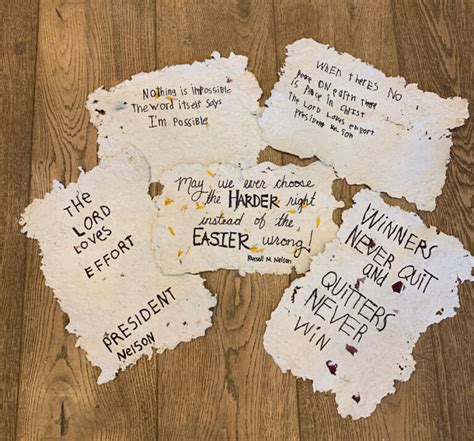 Nothing is impossible
The word itself says
I'm possible
WHEN THERES NO
Peace ON earth there
is Peace in Christ
The Lord Loves effort
President Nelson
THE
LORD
LOVES
EFFORT
PRESIDENT
NelSON
May we ever choose
the HARDER right
instead of the
EASIER wrong!
Russell M. Nelson
WINNERS
NEVER QUIT
and
QUITTERS
NEVER
WIN